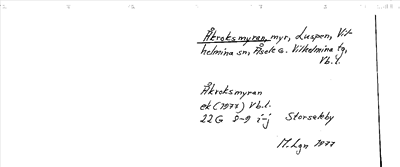 Åkroksmyran, myr, Luspen, Vil-
helmina sn, Åsele o. Vilhelmina tg,
Vb.l.
Åkroksmyran
ek (1977) Vb.l.
22G 8-9 i-j Storseleby
M. Lgn 1977